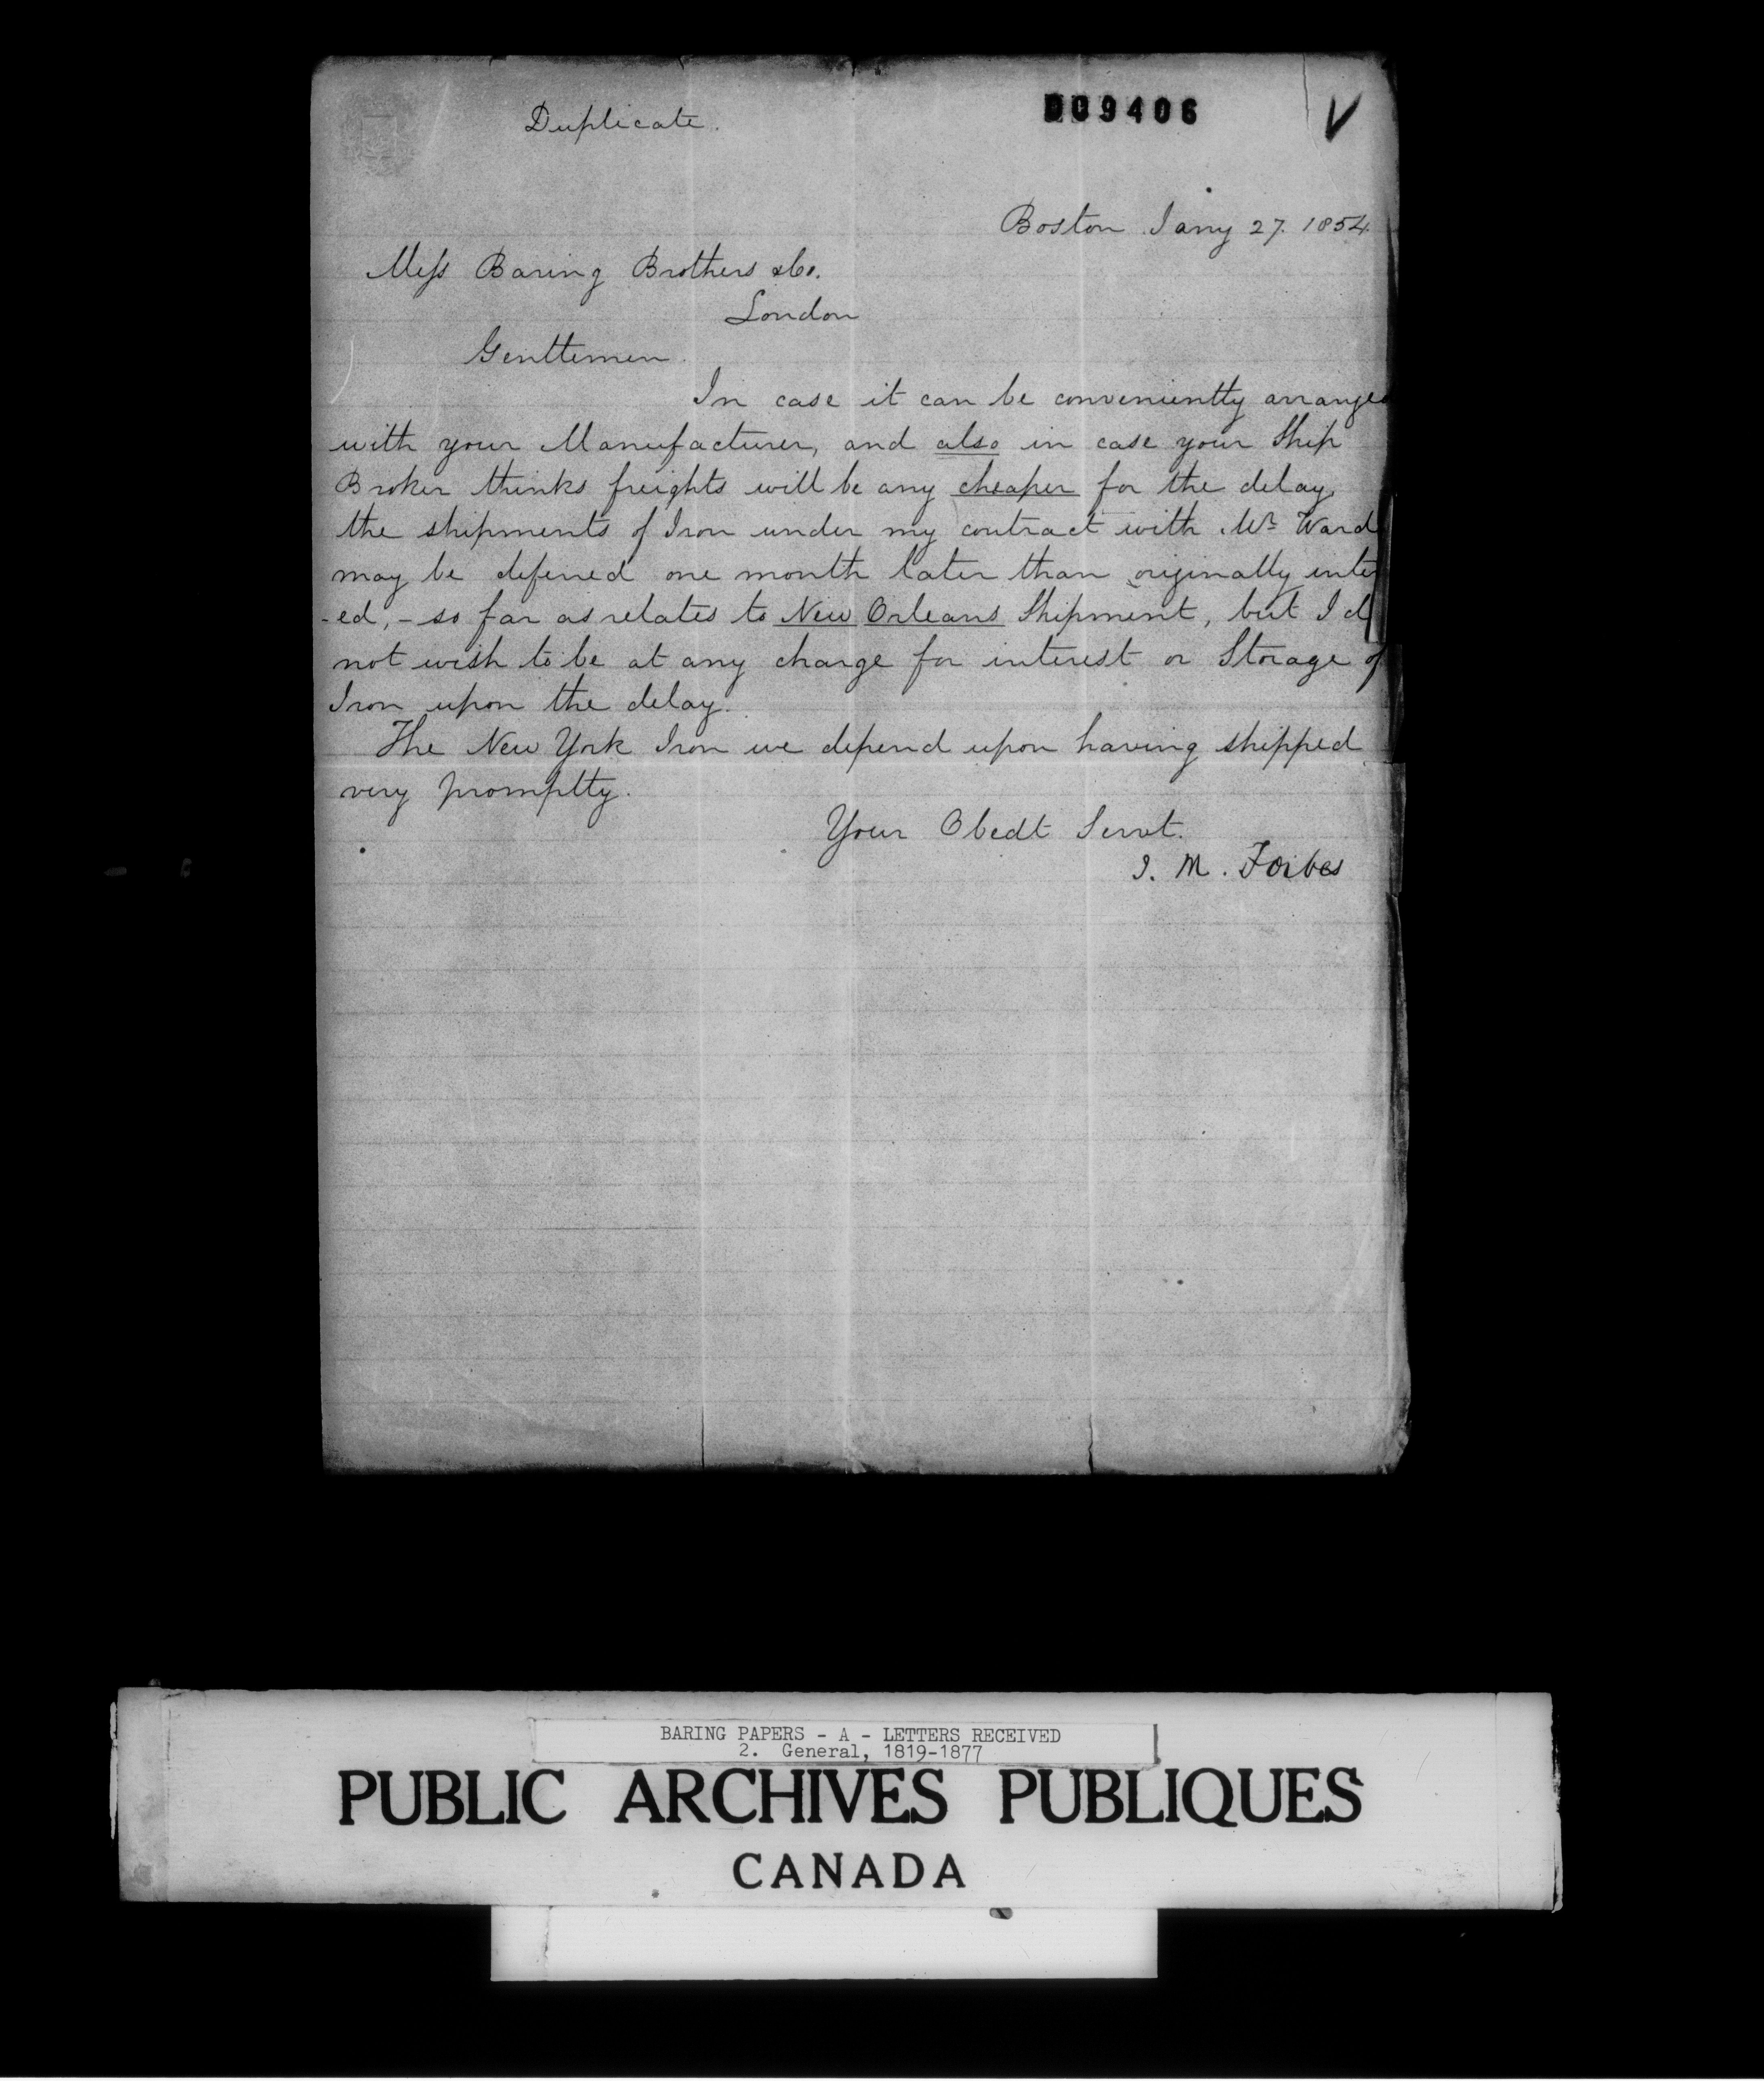 Duplicate.
009406
V
Boston Jany 27. 1854
Mess Baring Brothers & Co.
London
Gentlemen.
In case it can be conveniently arranged
with your Manufacturer, and also in case your Ship
Broker thinks freights will be any cheaper for the delay,
the shipments of Iron under my contract with Mr Ward
may be deferred one month later than originally inten
-ed, - so far as relates to New Orleans Shipment, but I d
not wish to be at any charge for interest or Storage of
Iron upon the delay.
The New York Iron we depend upon having shipped
very promptly.
Your Obedt Servt.
J. M. Forbes
BARING PAPERS - A - LETTERS RECEIVED
2. General, 1819-1877
PUBLIC ARCHIVES PUBLIQUES
CANADA